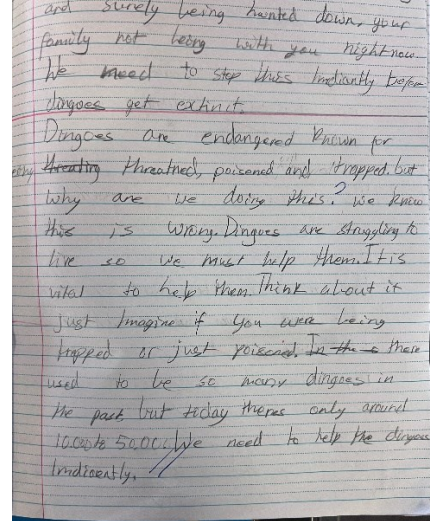 and surely being hunted down, your
family not being with you right now.
We need to stop this Imediantly before
dingoes get extinit.
Dingoes are endangered known for
being threatned, poisened and trapped. but
why are we doing this? we know
this is wrong. Dingoes are struggling to
live so we must help them. It is
vital to help them. Think about it
just Imagine if you were being
trapped or just poisened. In the s there
used to be so many dingoes in
the past but today theres only around
10.000 to 50.000. We need to help the dingoes
Imdicently.